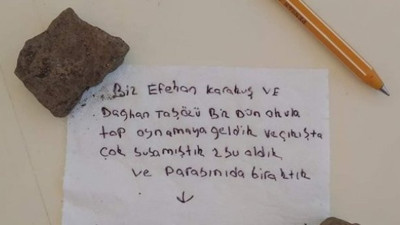 Biz Efehan Karakuş VE
Dağhan Taşözü Biz Dün okula
top oynamaya geldik ve çıkışta
çok susamıştık 2 su aldık
ve parasınıda bıraktık
↓